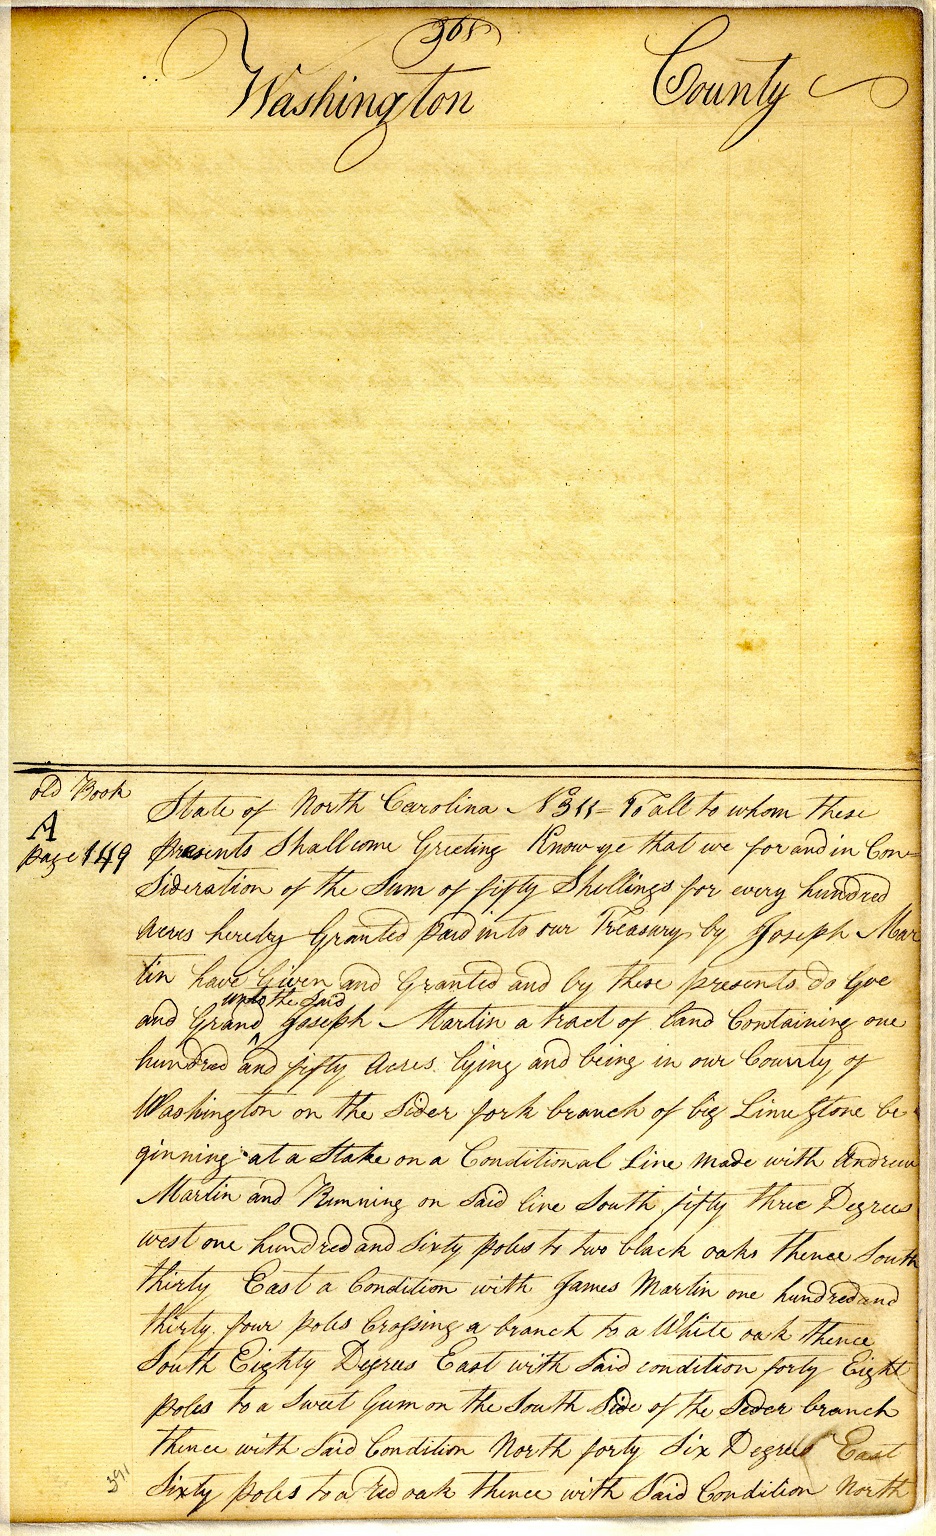 Washington County
old Book
A
page 149
State of North Carolina No 311 To all to whom these
presents Shall come Greeting Know ye that we for and in Con=
Sideration of the Sum of fifty Shillings for every hundred
acres hereby Granted paid into our Treasury by Joseph Mar
tin have Given and Granted and by these presents do Give
unto the said
and Grand ^ Joseph Martin a tract of land Containing one
hundred and fifty Acres lying and being in our County of
Washington on the Seder fork branch of big Lime Stone be
ginning at a Stake on a Conditional Line made with Andrew
Martin and Running on Said line South fifty three Degrees
west one hundred and Sixty poles to two black oaks thence South
thirty East a Condition with James Martin one hundred and
thirty four poles Crossing a branch to a White oak thence
South Eighty Degrees East with Said condition forty Eight
poles to a Sweet Gum on the South Side of the Seder branch
thence with Said Condition North forty Six Degrees East
Sixty poles to a red oak thence with Said Condition North
391